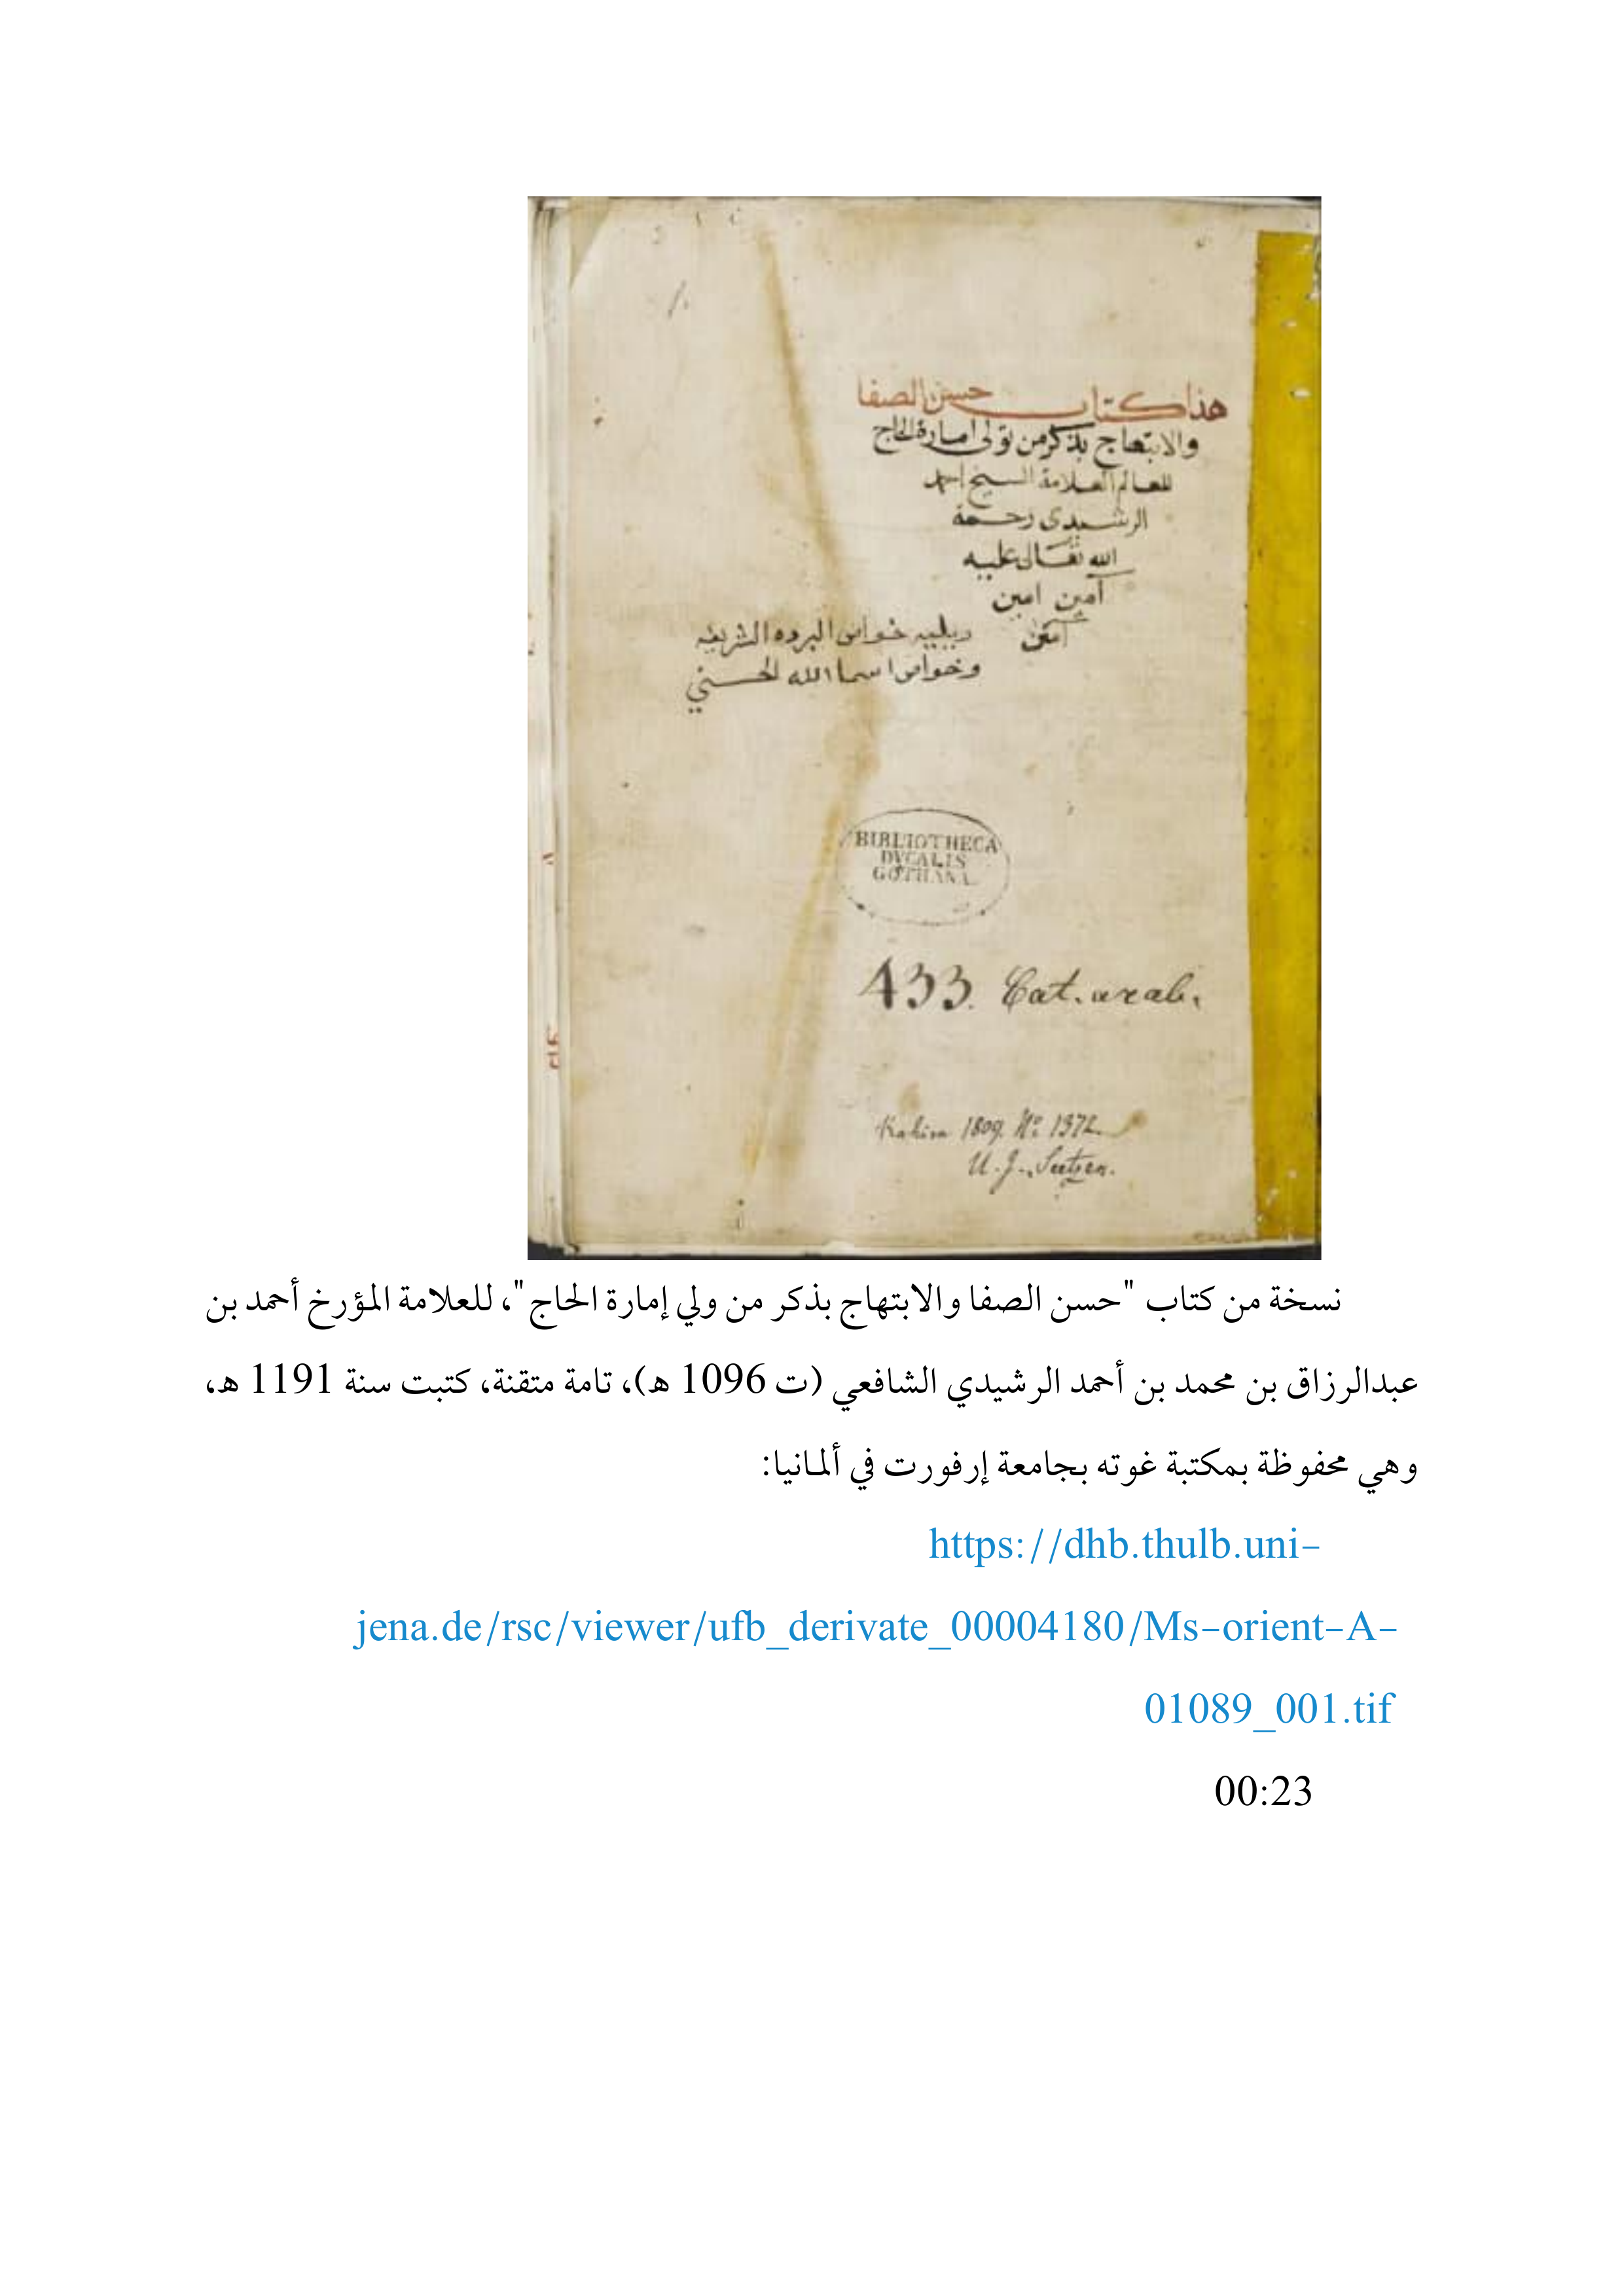 هذا كتاب حسن الصفا
والابتهاج بذكر من تولى امارة الحاج
للعالم العلامة الشيخ احمد
الرشيدى رحمة
الله تعالى عليه
آمين امين
آمين
ويليه خواص البرده الشريفه
وخواص اسما الله الحسني
BIBLIOTHECA
DVCALIS
GOTHANA
433. Cat. arab.
Kahira 1809. No. 1372.
U. J. Seetzen.
نسخة من كتاب "حسن الصفا والابتهاج بذكر من ولي إمارة الحاج"، للعلامة المؤرخ أحمد بن
عبدالرزاق بن محمد بن أحمد الرشيدي الشافعي (ت 1096 هـ)، تامة متقنة، كتبت سنة 1191 هـ،
وهي محفوظة بمكتبة غوته بجامعة إرفورت في ألمانيا:
https://dhb.thulb.uni-
jena.de/rsc/viewer/ufb_derivate_00004180/Ms-orient-A-
01089_001.tif
00:23